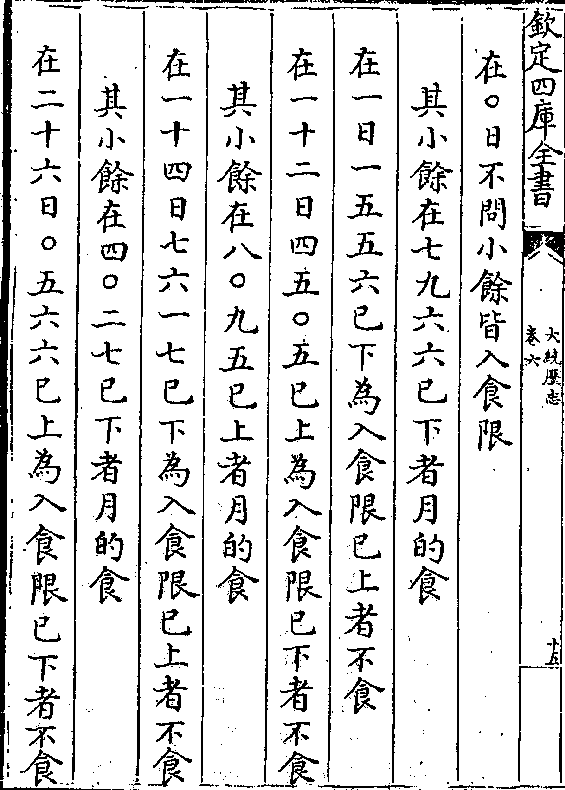 欽定四庫全書
大統歷志
卷六
十五
在〇日不問小餘皆入食限
其小餘在七九六六已下者月的食
在一日一五五六已下為入食限已上者不食
在一十二日四五〇五已上為入食限已下者不食
其小餘在八〇九五已上者月的食
在一十四日七六一七已下為入食限已上者不食
其小餘在四〇二七已下者月的食
在二十六日〇五六六已上為入食限已下者不食